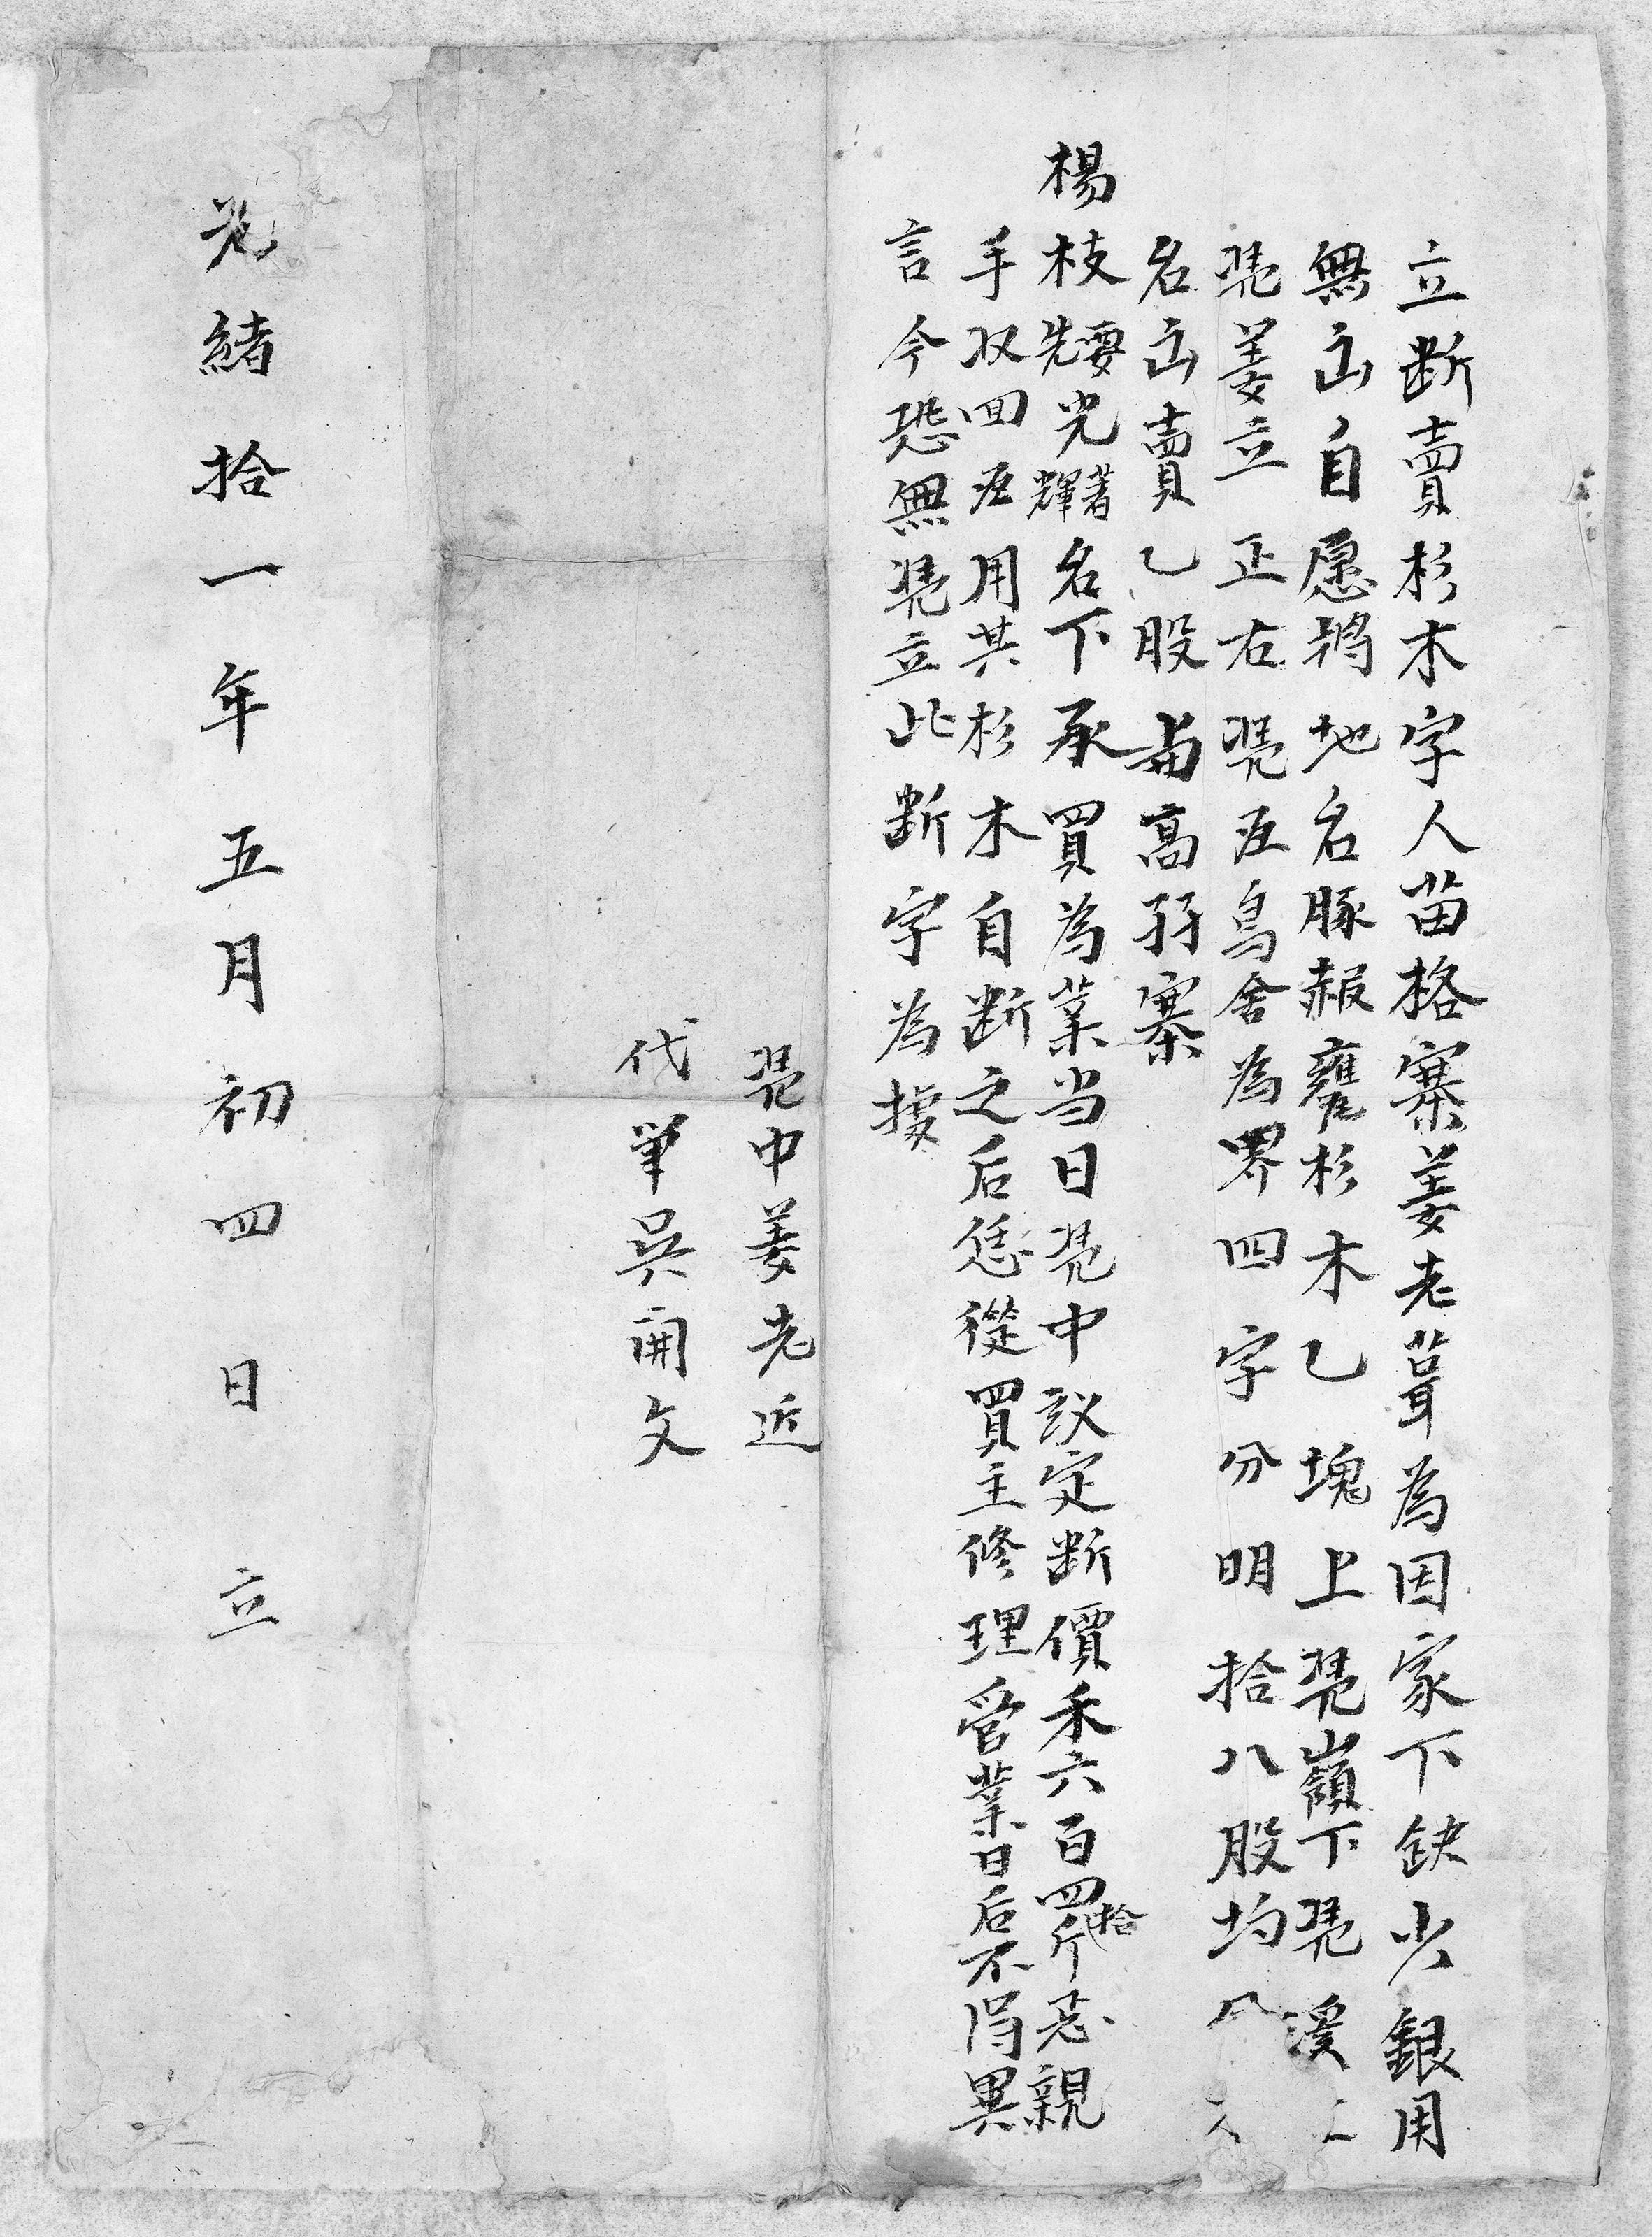 立断賣杉木字人苗格寨姜老葺為因家下缺少銀用
無山自愿將地名豚赧甕杉木乙塊上凴嶺下凴溪
凴姜立正右凴在烏舍為界四字分明拾八股均
名山賣乙股與高孖寨
楊枝先要光輝著名下承買為業当日凴中議定断價禾六百四拾斤忿親
手收回在用其杉木自断之后恁從買主修理管業日后不得異
言今恐無凴立此断字為據
凴中姜老近
代筆吳開文
光緒拾一年五月初四日立